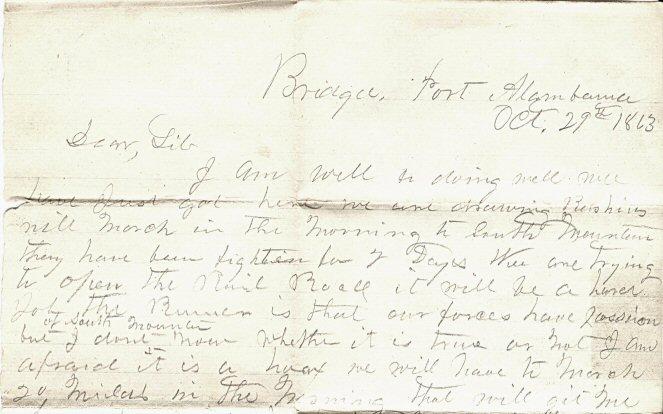 Bridge, Port Alambama
Oct, 29th 1863
Dear, Sib
I am well & doing well wee
have Just got here we are drawing Rashins
will March in the Morning to South Mountain
they have been fightin for 7 Days Wee are trying
to open the Rail Road it will be a hard
Job the Rumer is that our forces have possion
of South Mountin
but I dont now whether it is true or not I am
afraid it is a hoax we will have to March
20, Miles in the Morning that will git me